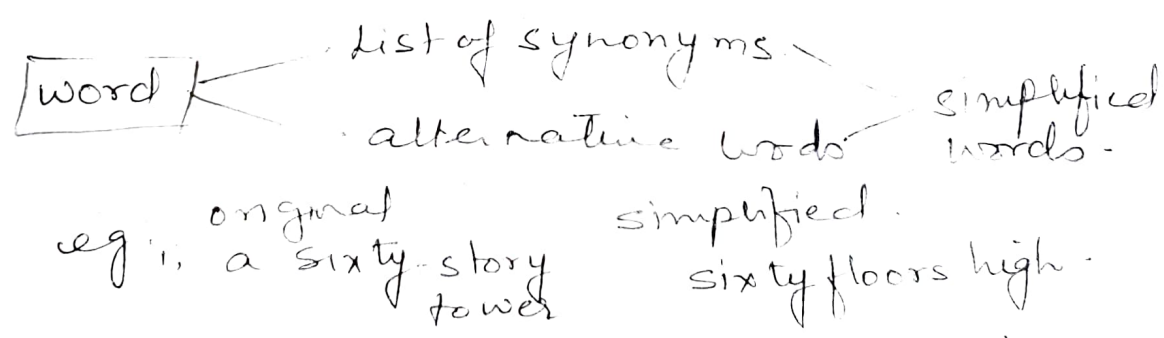 List of synonyms
word
alternative words
simplified
words.
original
simplified.
eg :, a sixty-story
tower
sixty floors high.